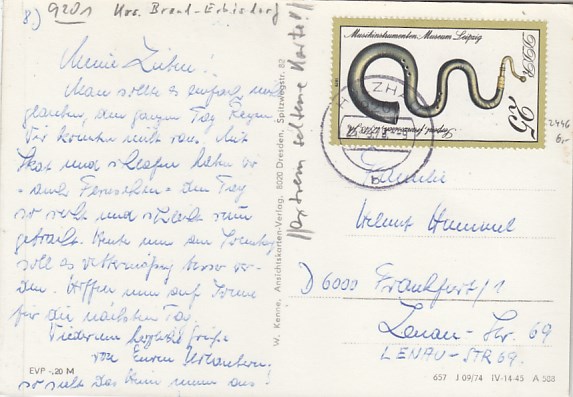 8) 9201 Krs. Brand-Erbisdorf
Meine Lieben!
Man sollte es einfach nicht
glauben, den ganzen Tag Regen.
Wir konnten nicht raus. Mit
Skat und schlafen haben wir
- auch Fernsehen - den Tag
so recht und schlecht rum
gebracht. Heute nun am Sonntag
soll es wettermäßig besser wer-
den. Hoffen nun auf Sonne
für die nächsten Tag.
Wiederum herzliche Grüße
von Euren Urlaubern.
so sieht das Heim innen aus!
EVP -,20 M
W. Kenne, Ansichtskarten-Verlag, 8020 Dresden, Spitzwegstr. 82
Extrem seltene Karte!!
Musikinstrumenten-Museum Leipzig
DDR
25
Serpent
2446
6,-
Familie
Helmut Hummel
D 6000 Frankfurt/1
Lenau-Str. 69
LENAU-STR 69.
657 J 09/74 IV-14-45 A 508